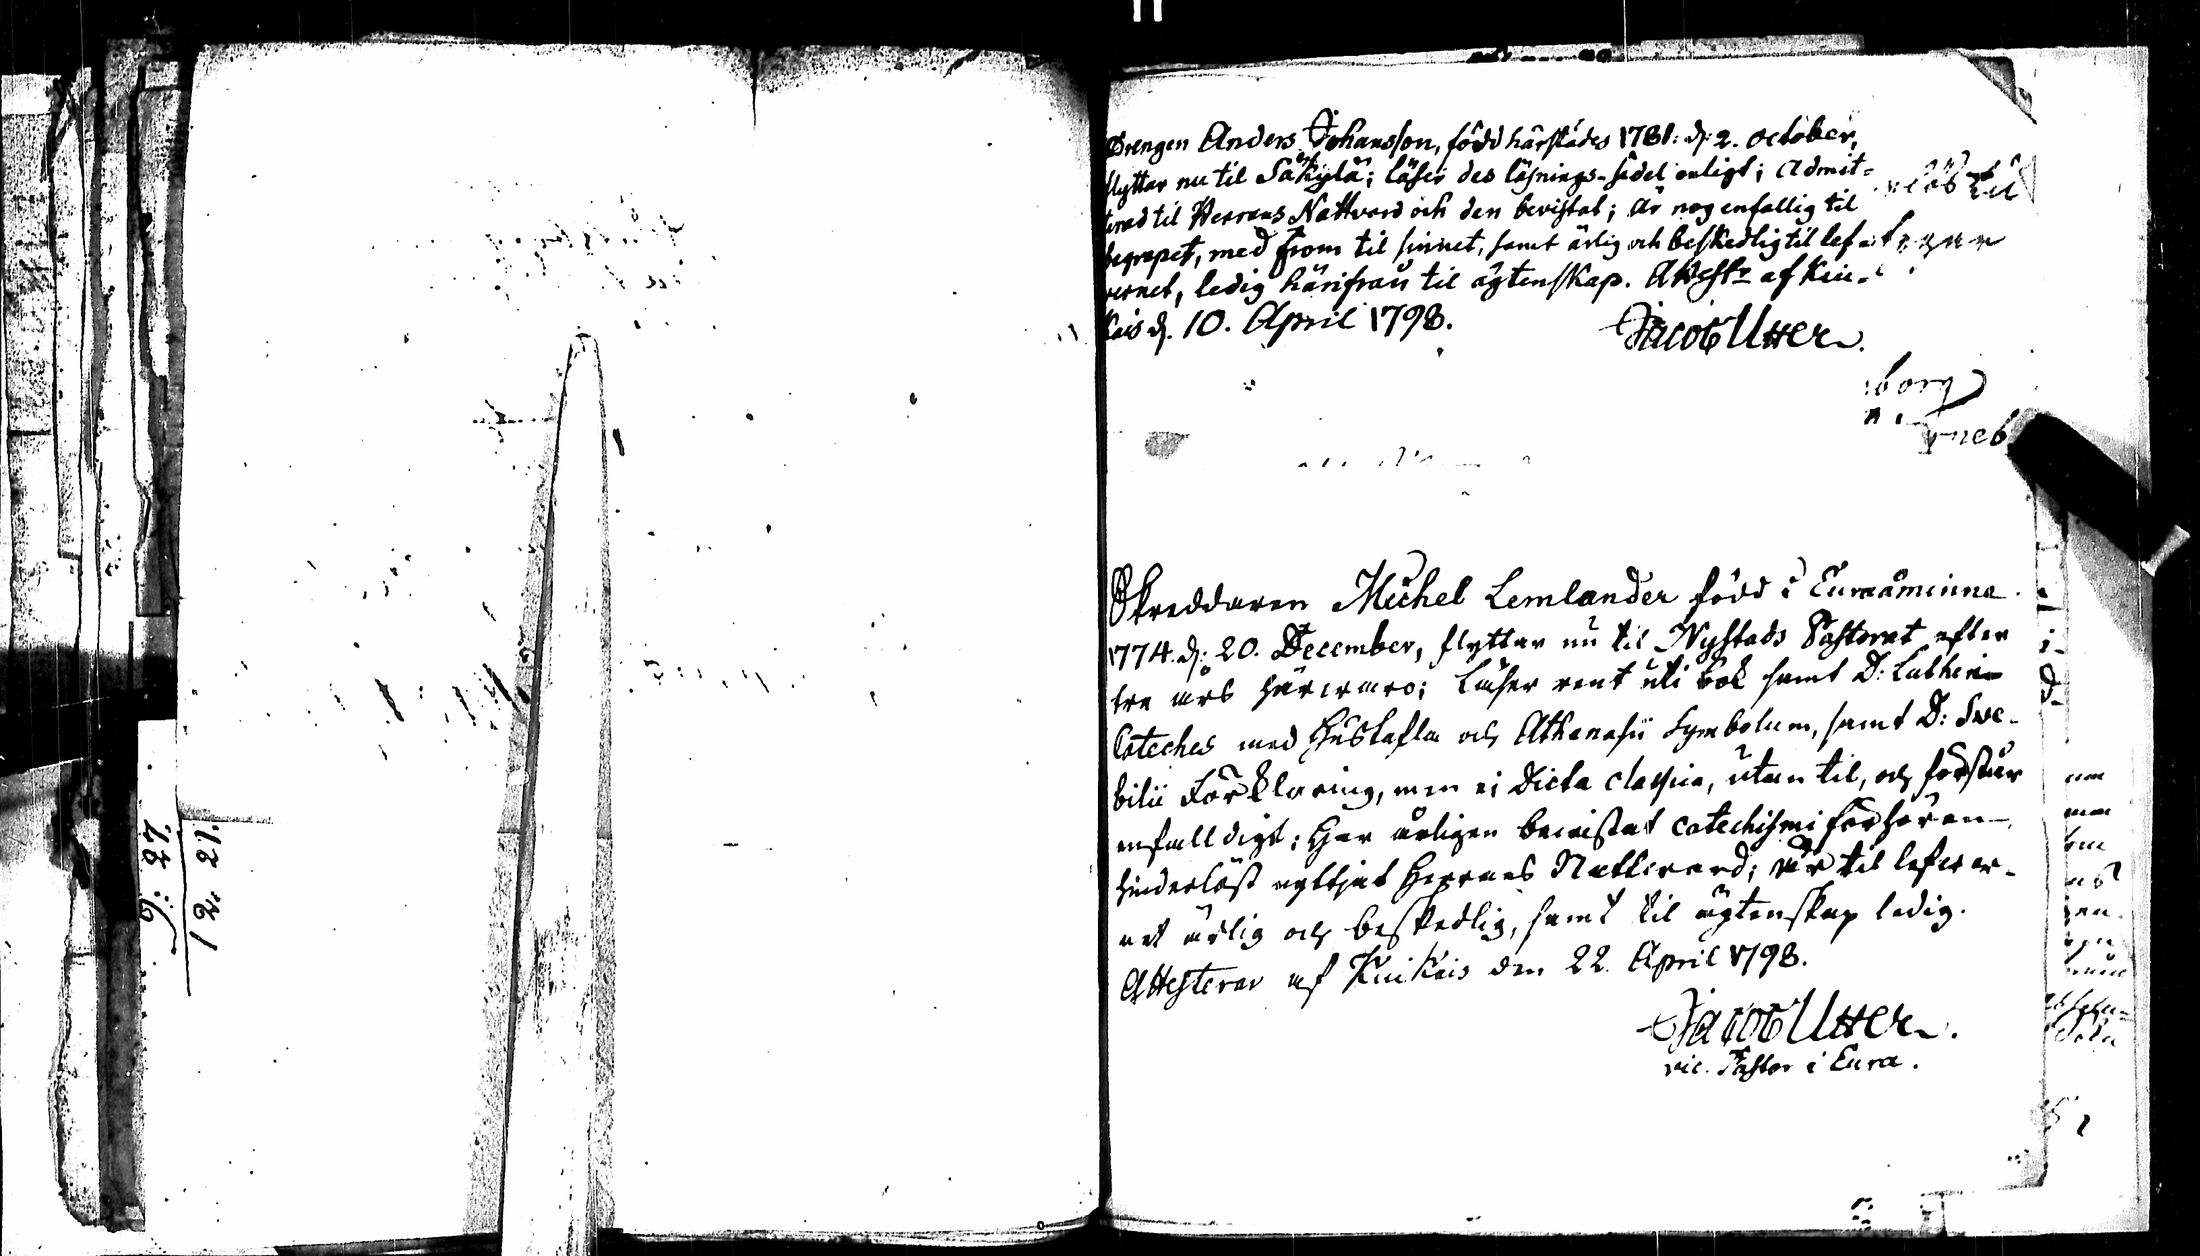 Drengen Anders Johansson, född härstädes 1781: d. 2. october,
flyttar nu til Säkylä; läser des läsnings-sedel enligt; admit-
terad til Herrans Nattvard och den bevistat; är nog enfallig til
begrepet, med from til sinnet, samt ärlig och beskedlig til lef-
vernet, ledig härifrån til ägtenskap. Attestr af Kiu-
kais d. 10. April 1798.
Jacob Utter.
borg
Skreddaren Michel Lemlander född i Euraåminne
1774. d: 20. December, flyttar nu til Nystads Pastorat efter
tre års härwaro; läser rent uti bok samt D: Lutheri
Cateches med Hustafla och Athanasii Symbolum, samt D: Swe-
bilii Förklaring, men ei Dicta classica, utan til, och förstår
enfalldigt; har årligen bewistat catechismi förhören
hinderlöst nyttjat Herrans Nattward; är til lefwer-
net ärlig och beskedlig, samt til ägtenskap ledig.
Attesterar af Kiukais den 22. April 1798.
Jacob Utter.
vic. Pastor i Eura.